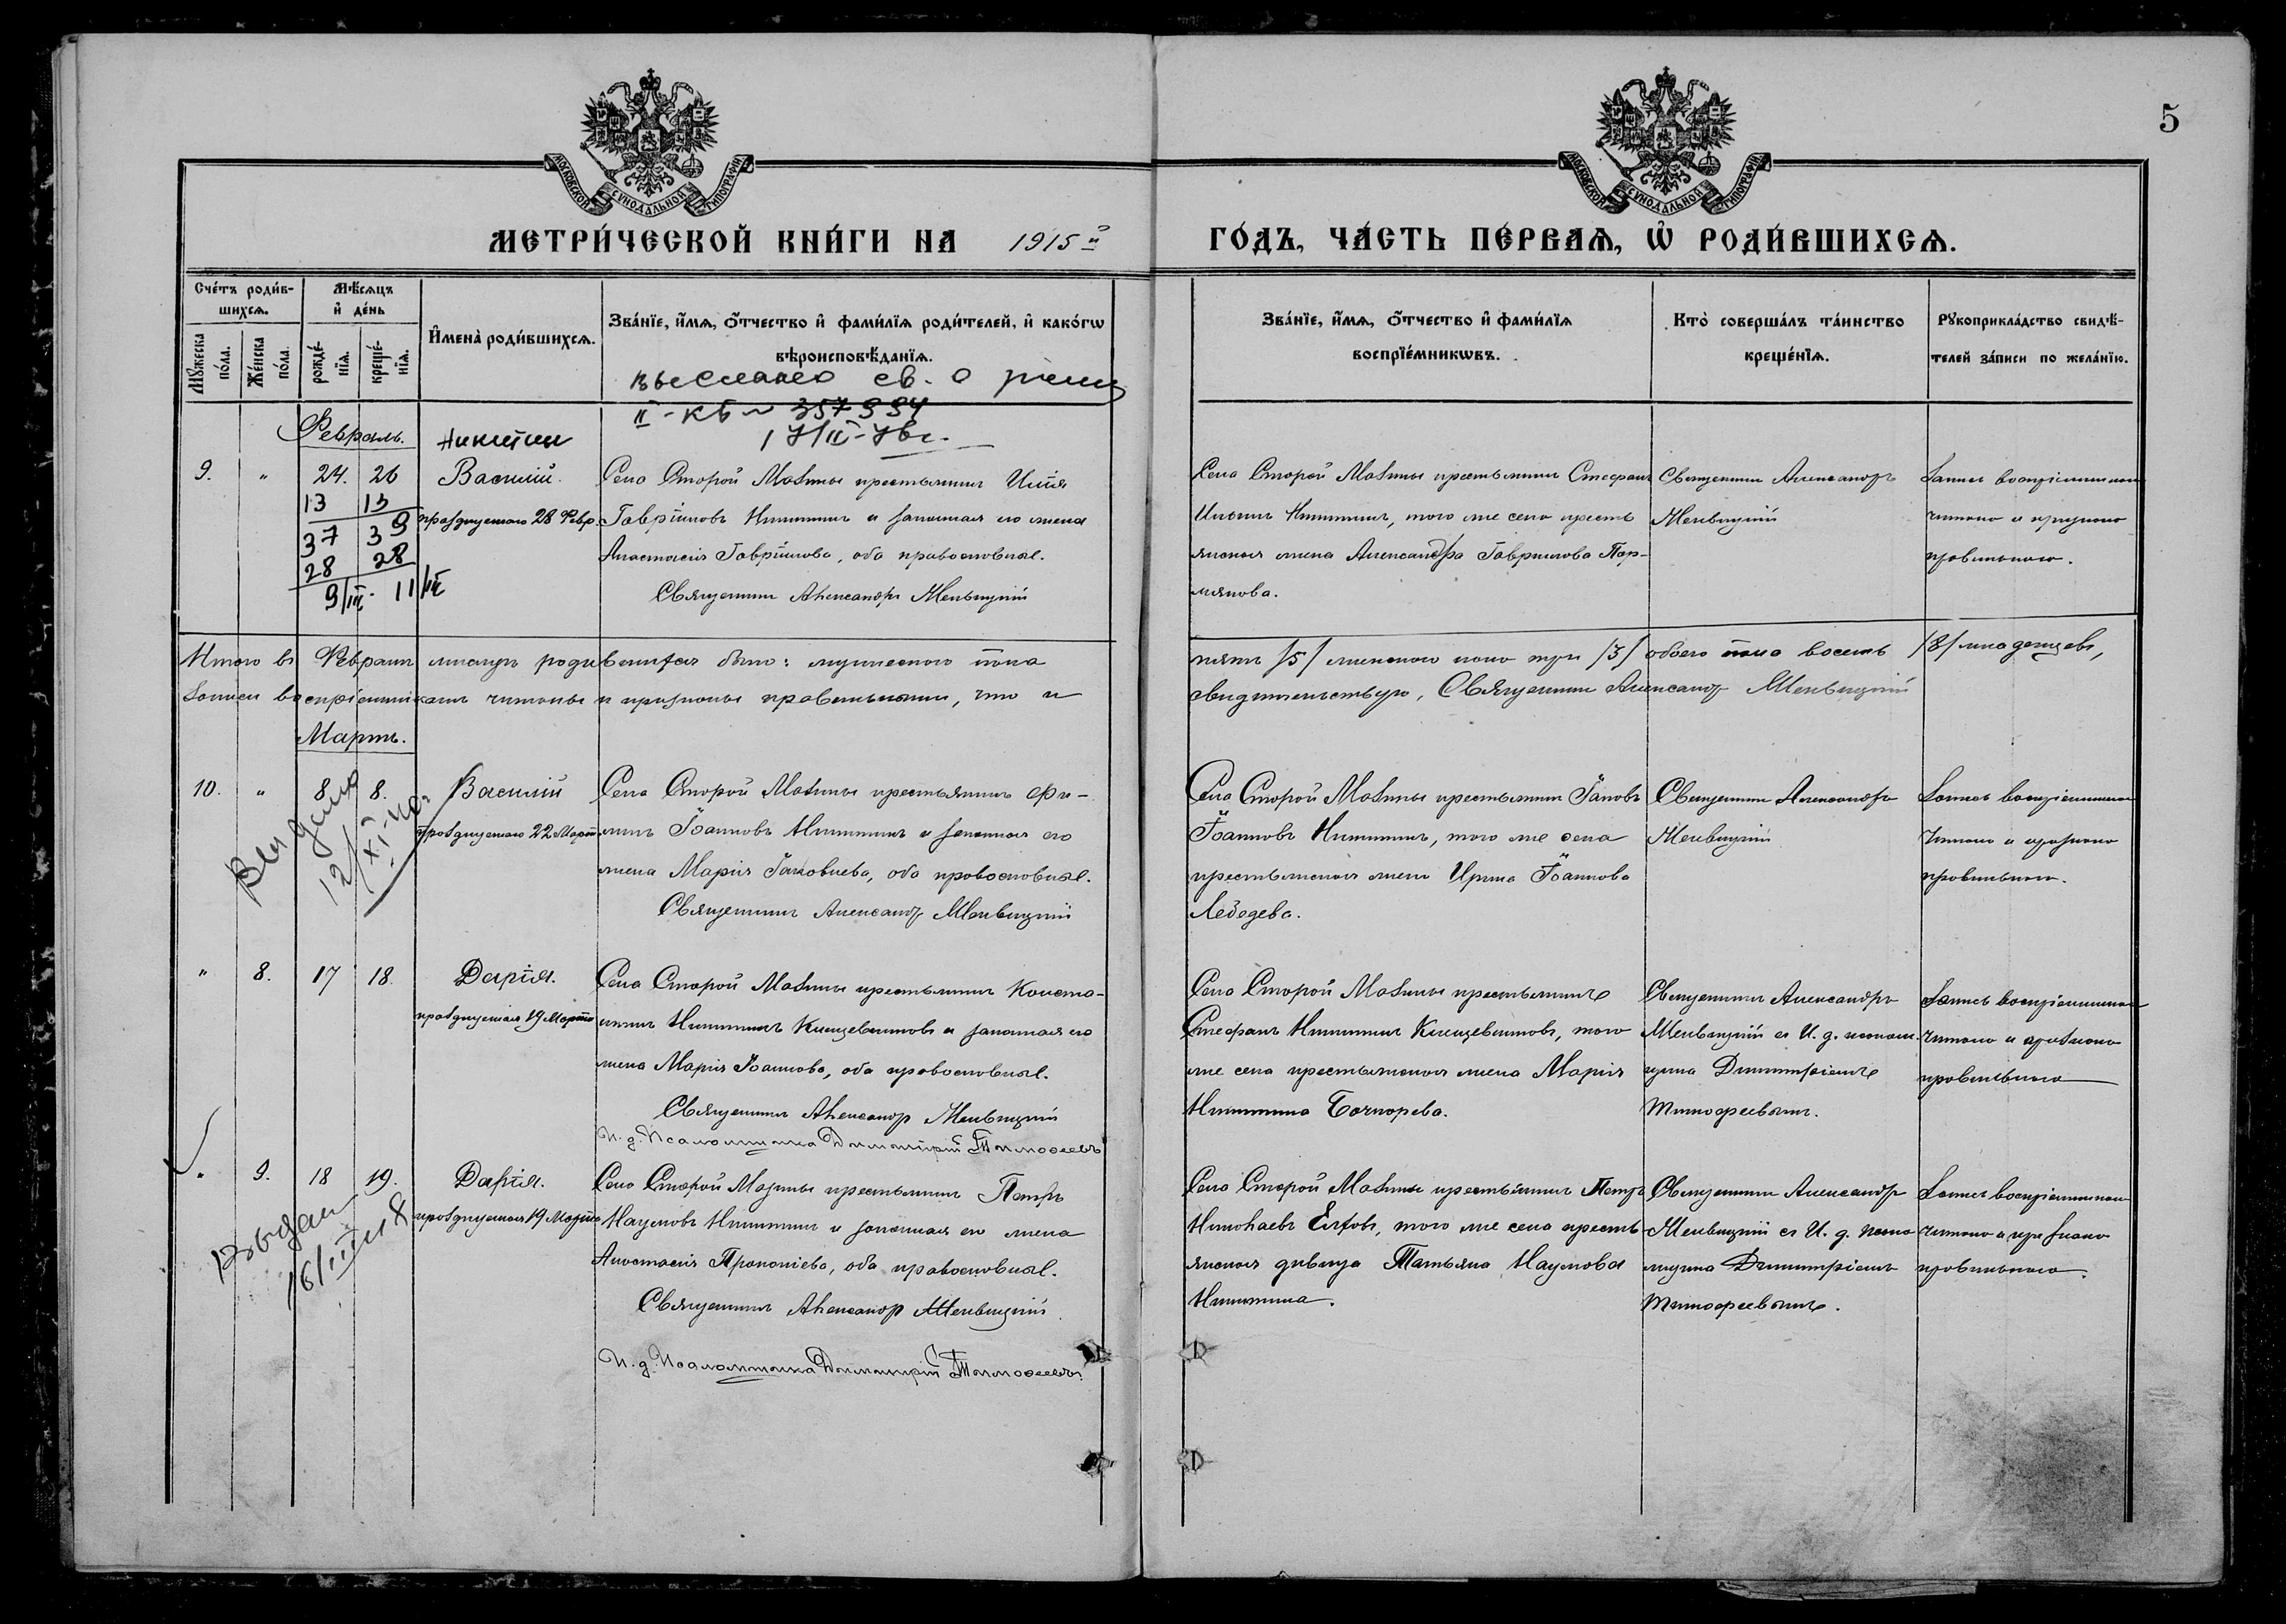 5
МОСКОВСКОЙ СѴНОДАЛЬНОЙ ТИПОГРАФІИ
МОСКОВСКОЙ СѴНОДАЛЬНОЙ ТИПОГРАФІИ
МЕТРИ́ЧЕСКОЙ КНИ́ГИ НА 1915й ГО́ДЪ, ЧА́СТЬ ПЕ́РВАѦ, Ѡ҆ РОДИ́ВШИХСѦ.
Сче́тъ роди́в-
шихсѧ.
Мꙋжеска
по́ла.
Же́нска
по́ла.
Мѣ́сѧцъ
и҆ де́нь
рожде́-
нїѧ.
креще́-
нїѧ.
И҆мена̀ роди́вшихсѧ.
Зва́нїе, и҆́мѧ, ѻ҆́тчество и҆ фами́лїѧ роди́телей, и҆ како́гѡ
вѣроисповѣ́данїѧ.
Зва́нїе, и҆́мѧ, ѻ҆́тчество и҆ фами́лїѧ
воспрїе́мникѡвъ.
Кто̀ соверша́лъ та́инство
креще́нїѧ.
Рꙋкоприкла́дство свидѣ́-
телей за́писи по жела́нїю.
выслано св. о рожд
II-КБ № 357994
17/II-78г.
Февраль.
Никитин
9. " 24. 26 Василій.
13 13
37 39
28 28
9/III. 11/III
празднуемаго 28 Февр.
Села Старой Мазины крестьянинъ Илія
Гавріиловъ Никитинъ и законная его жена
Анастасія Гавріилова, оба православные.
Священникъ Александръ Меньвицкій
Села Старой Мазины крестьянинъ Стефанъ
Ильинъ Никитинъ, того же села кресть
янская жена Александра Гаврилова Пар-
мянова.
Священникъ Александръ
Меньвицкій
Запись воспріемникамъ
читана и признана
правильною.
Итого въ Февралѣ мѣсяцѣ родившихся было: мужескаго пола
пять /5/ женскаго пола три /3/ обоего пола восемь /8/ младенцевъ,
Записи воспріемникамъ читаны и признаны правильными, что и
свидѣтельствую, Священникъ Александръ Меньвицкій
Мартъ.
10. " 8 8. Василій
празднуемаго 22 Марта
Выдана
12/XI-40г
Села Старой Мазины крестьянинъ Фи-
липъ Іоанновъ Никитинъ и законная его
жена Марія Іаковлева, оба православные.
Священникъ Александръ Меньвицкій
Села Старой Мазины крестьянинъ Іаковъ
Іоанновъ Никитинъ, того же села
крестьянская жена Ирина Іоаннова
Лебедева.
Священникъ Александръ
Меньвицкій
Запись воспріемникамъ
читана и признана
правильною.
" 8. 17 18. Дарія.
празднуемая 19 Марта
Села Старой Мазины крестьянинъ Конста-
нтинъ Никитинъ Клещевниковъ и законная его
жена Марія Іоаннова, оба православные.
Священникъ Александръ Меньвицкій
И. д. Псаломщика Димитрій Тимоѳеевъ
Села Старой Мазины крестьянинъ
Стефанъ Никитинъ Клещевниковъ, того
же села крестьянская жена Марія
Никитина Бочкарева.
Священникъ Александръ
Меньвицкій съ И. д. псалом.
щика Димитріемъ
Тимофеевымъ.
Запись воспріемникамъ
читана и признана
правильною
" 9. 18 19. Дарія.
празднуемая 19 Марта
Выдан
16/III 118
Села Старой Мазины крестьянинъ Петръ
Наумовъ Никитинъ и законная его жена
Анастасія Прокопіева, оба православные.
Священникъ Александръ Меньвицкій.
И. д. Псаломщика Димитрій Тимоѳеевъ.
Села Старой Мазины крестьянинъ Петръ
Николаевъ Елховъ, того же села кресть
янская дѣвица Татьяна Наумова
Никитина.
Священникъ Александръ
Меньвицкій съ И. д. псало
мщика Димитріемъ
Тимофеевымъ.
Запись воспріемникамъ
читана и признана
правильною.